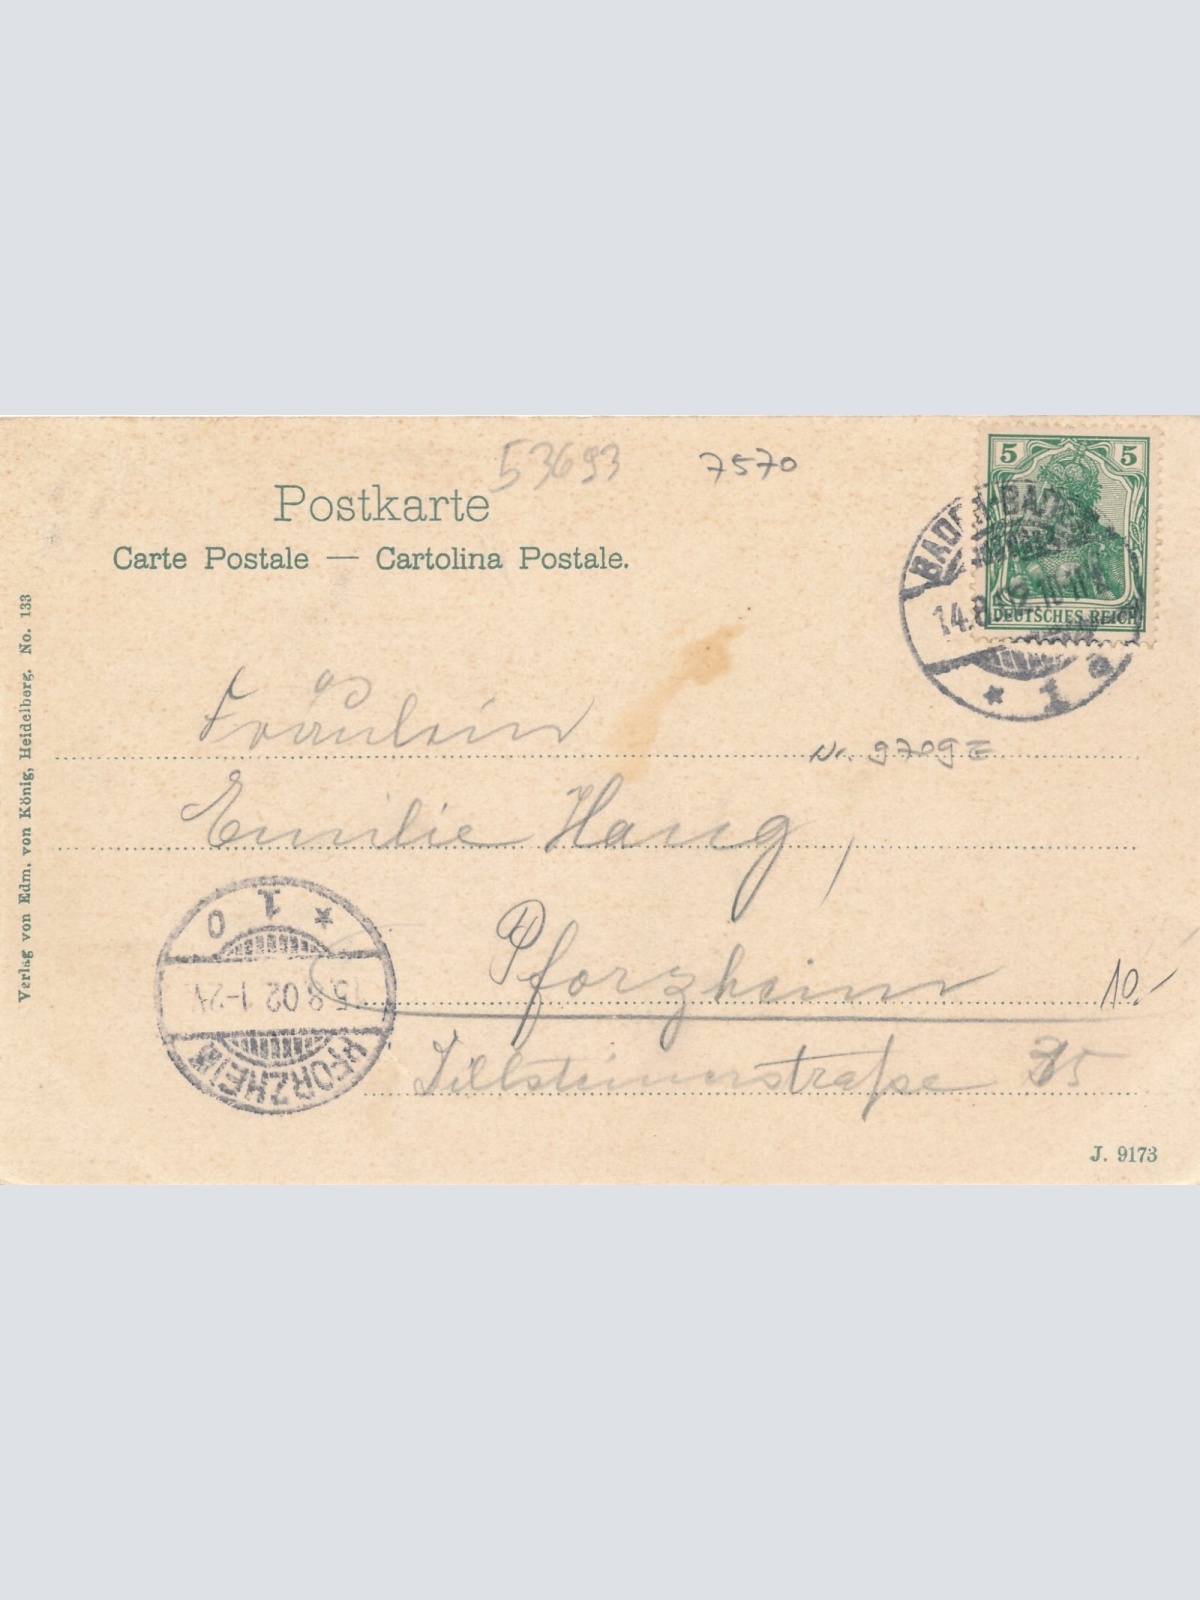 53693
7570
Postkarte
Carte Postale — Cartolina Postale.
5 5
DEUTSCHES REICH
BADEN-BADEN
14.8.02 10-11V
* 1 a
Verlag von Edm. von König, Heidelberg. No. 133
Fräulein
Nr. 9709 E
Emilie Haug,
Pforzheim
10.-
straße 35
PFORZHEIM
15.8.02 1-2V
* 1 0
J. 9173